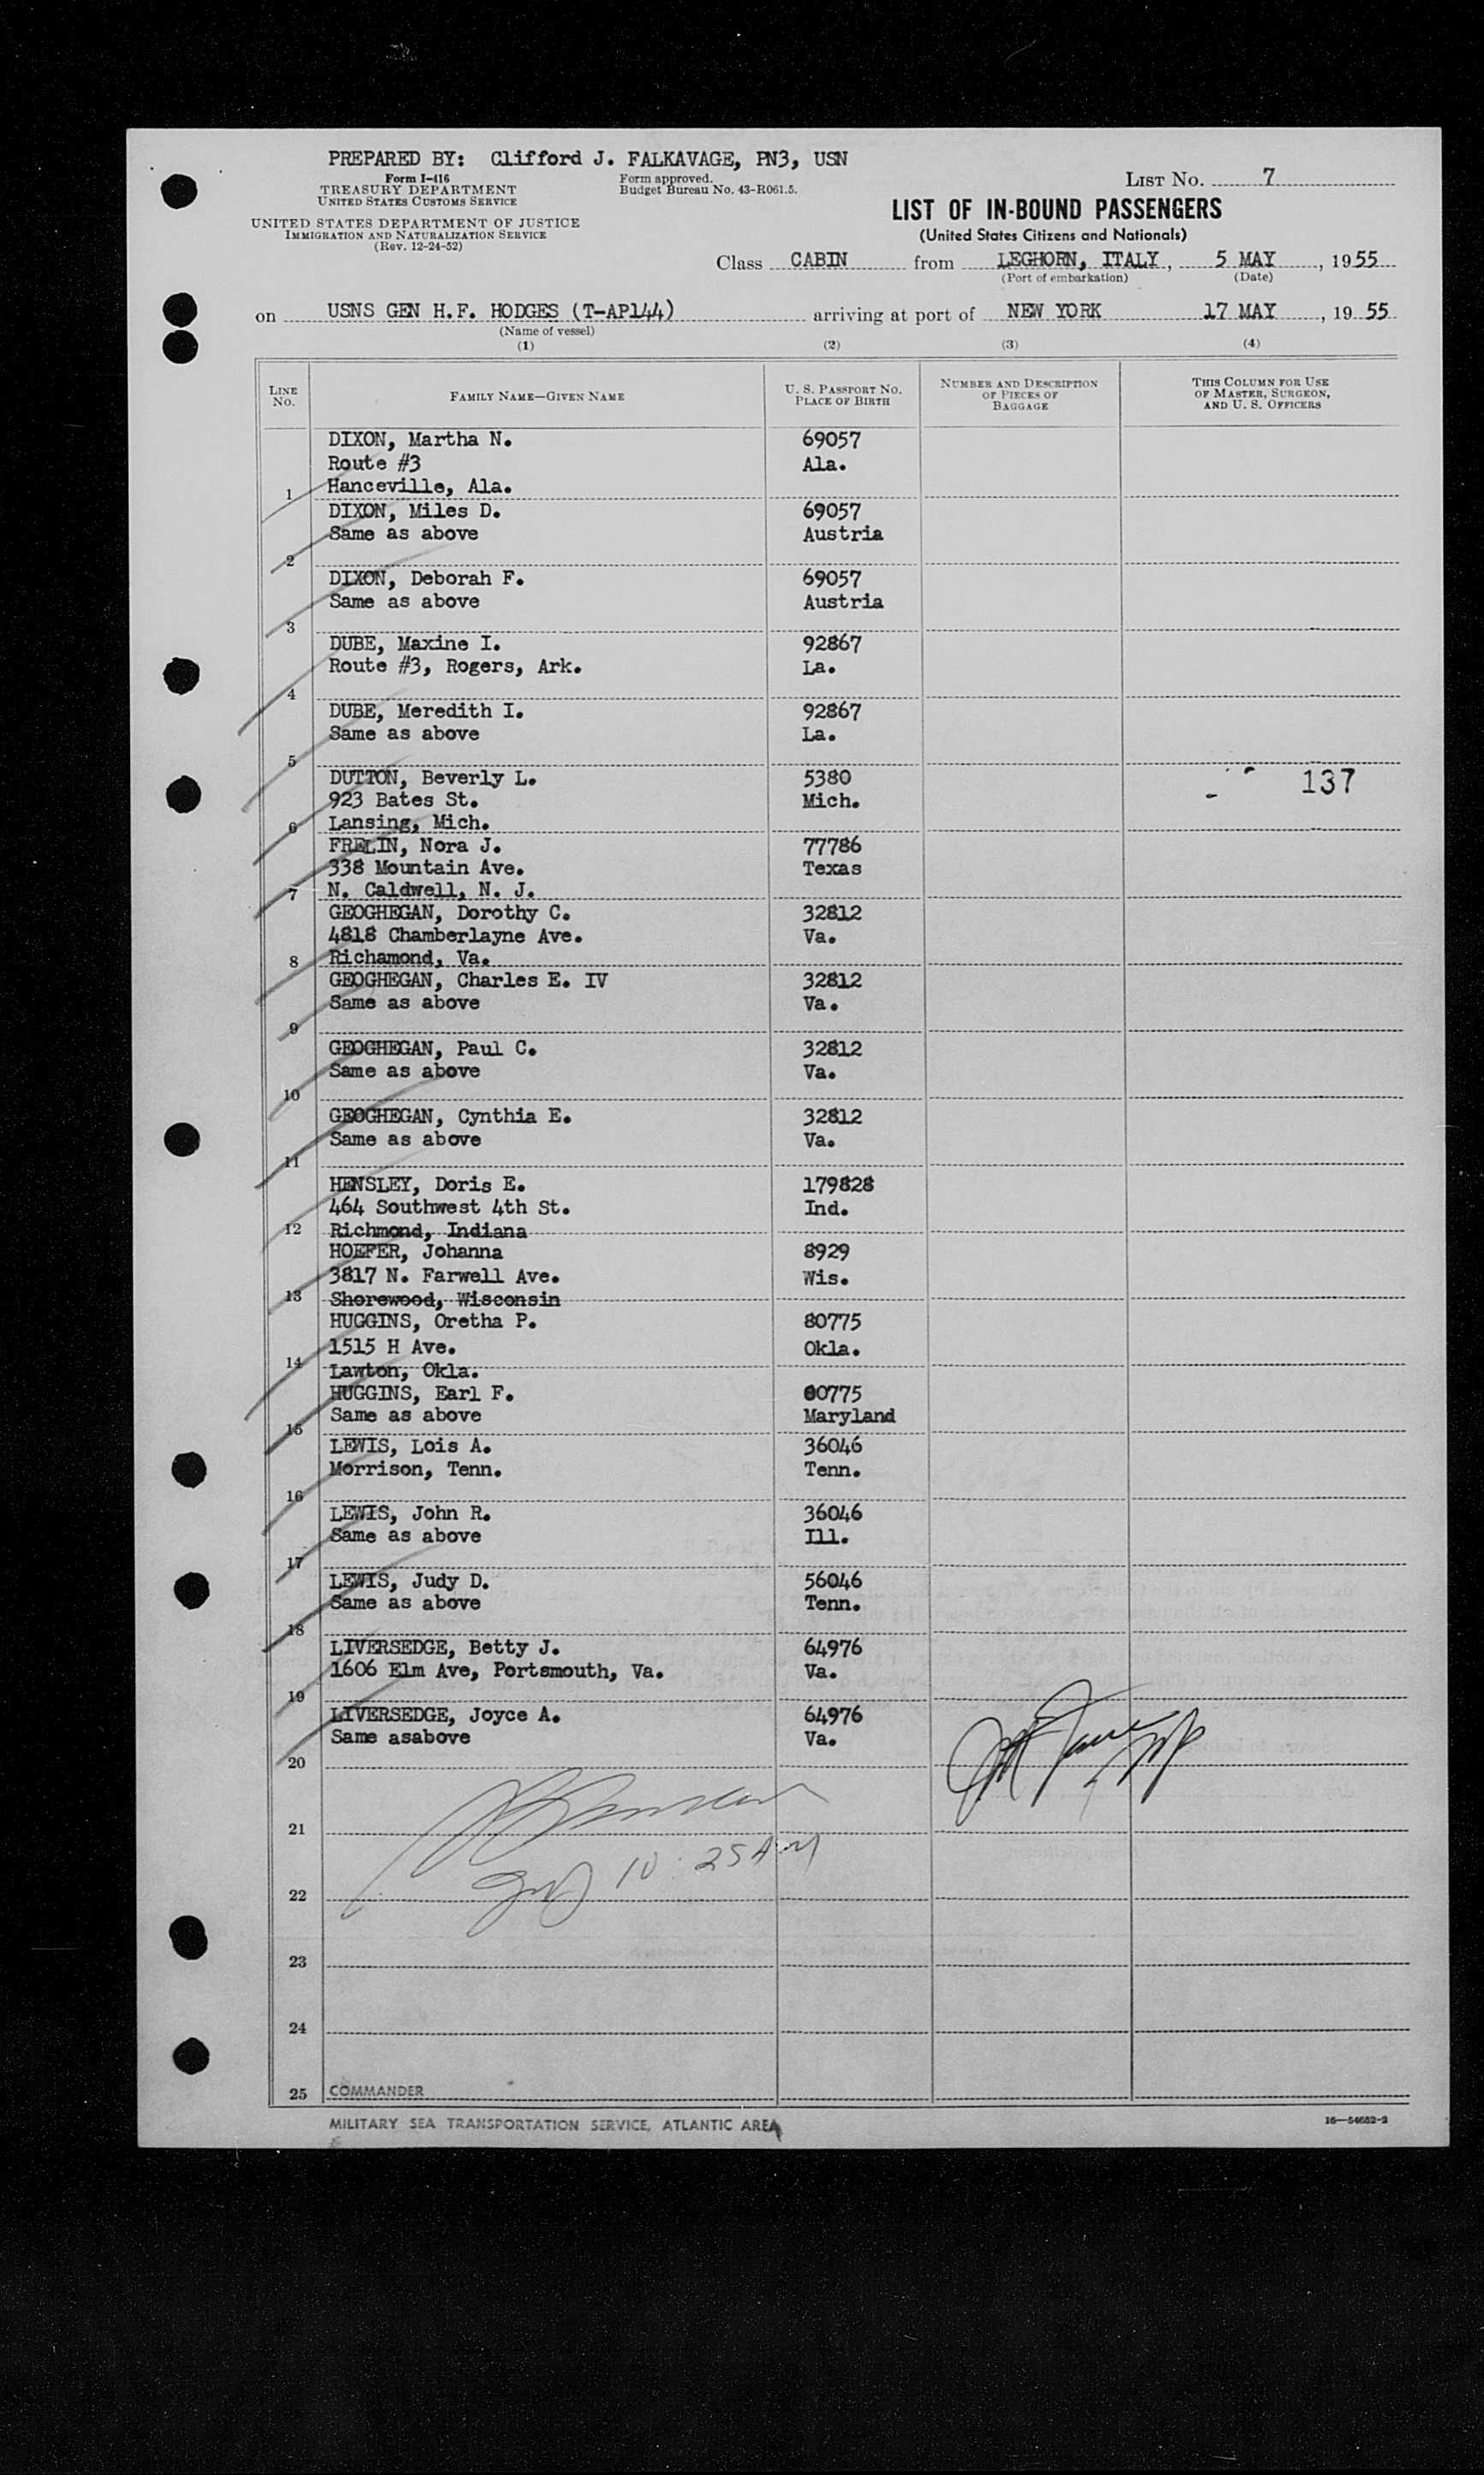 PREPARED BY: Clifford J. FALKAVAGE, PN3, USN
Form I-416
TREASURY DEPARTMENT
UNITED STATES CUSTOMS SERVICE
Form approved.
Budget Bureau No. 43-R061.5.
LIST No. 7
UNITED STATES DEPARTMENT OF JUSTICE
IMMIGRATION AND NATURALIZATION SERVICE
(Rev. 12-24-52)
LIST OF IN-BOUND PASSENGERS
(United States Citizens and Nationals)
Class CABIN from LEGHORN, ITALY, 5 MAY, 1955
(Port of embarkation) (Date)
on USNS GEN H.F. HODGES (T-AP144) arriving at port of NEW YORK 17 MAY, 1955
(Name of vessel)
(1) (2) (3) (4)
LINE No.
FAMILY NAME—GIVEN NAME
U. S. PASSPORT No.
PLACE OF BIRTH
NUMBER AND DESCRIPTION
OF PIECES OF
BAGGAGE
THIS COLUMN FOR USE
OF MASTER, SURGEON,
AND U. S. OFFICERS
DIXON, Martha N. 69057
Route #3 Ala.
1 Hanceville, Ala.
DIXON, Miles D. 69057
Same as above Austria
2
DIXON, Deborah F. 69057
Same as above Austria
3
DUBE, Maxine I. 92867
Route #3, Rogers, Ark. La.
4
DUBE, Meredith I. 92867
Same as above La.
5
DUTTON, Beverly L. 5380 137
923 Bates St. Mich.
6 Lansing, Mich.
FRELIN, Nora J. 77786
338 Mountain Ave. Texas
7 N. Caldwell, N. J.
GEOGHEGAN, Dorothy C. 32812
4818 Chamberlayne Ave. Va.
8 Richamond, Va.
GEOGHEGAN, Charles E. IV 32812
Same as above Va.
9
GEOGHEGAN, Paul C. 32812
Same as above Va.
10
GEOGHEGAN, Cynthia E. 32812
Same as above Va.
11
HENSLEY, Doris E. 179828
464 Southwest 4th St. Ind.
12 Richmond, Indiana
HOEFER, Johanna 8929
3817 N. Farwell Ave. Wis.
13 Shorewood, Wisconsin
HUGGINS, Oretha P. 80775
1515 H Ave. Okla.
14 Lawton, Okla.
HUGGINS, Earl F. 80775
Same as above Maryland
15
LEWIS, Lois A. 36046
Morrison, Tenn. Tenn.
16
LEWIS, John R. 36046
Same as above Ill.
17
LEWIS, Judy D. 56046
Same as above Tenn.
18
LIVERSEDGE, Betty J. 64976
1606 Elm Ave, Portsmouth, Va. Va.
19
LIVERSEDGE, Joyce A. 64976
Same asabove Va.
20
21
10:25 AM
22
23
24
25 COMMANDER
MILITARY SEA TRANSPORTATION SERVICE, ATLANTIC AREA
16—54652-2